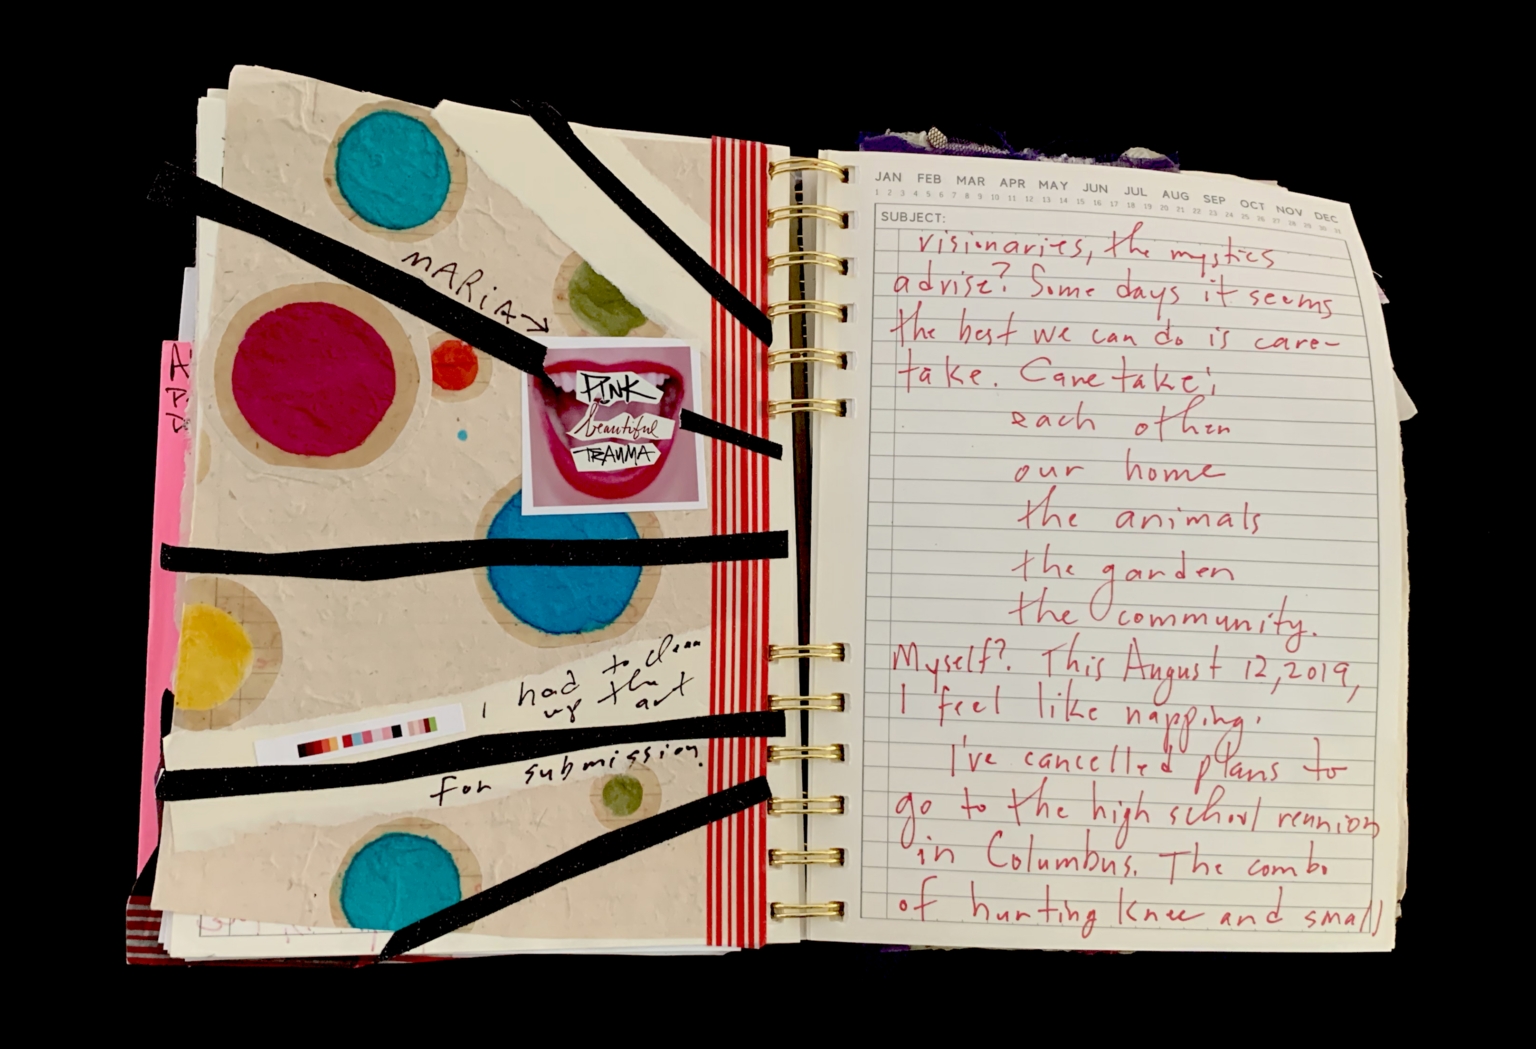 MARiA→
PINK
beautiful
TRAUMA
I had to clean
up the art
for submission.
JAN FEB MAR APR MAY JUN JUL AUG SEP OCT NOV DEC
1 2 3 4 5 6 7 8 9 10 11 12 13 14 15 16 17 18 19 20 21 22 23 24 25 26 27 28 29 30 31
SUBJECT:
visionaries, the mystics
advise? Some days it seems
the best we can do is care-
take. Caretake:
each other
our home
the animals
the garden
the community.
Myself? This August 12, 2019,
I feel like napping.
I've cancelled plans to
go to the high school reunion
in Columbus. The combo
of hurting knee and small